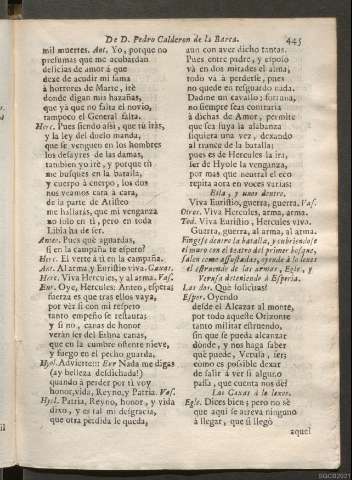 De D. Pedro Calderon de la Barca.
445
mil muertes. Ant. Yo, porque no
presumas que me acobardan
delicias de amor á que
dexe de acudir mi fama
á horrores de Marte, iré
donde digan mis hazañas,
que yá que no falta el novio,
tampoco el General falta.
Herc. Pues siendo assi, que tu irás,
y la ley del duelo manda,
que se venguen en los hombres
los desayres de las damas,
tambien yo iré, y porque tú
me busques en la batalla,
y cuerpo à cuerpo, los dos
nos veamos cara à cara,
de la parte de Aristeo
me hallarás, que mi venganza
no solo en ti, pero en toda
Libia ha de ser.
Anteo. Pues qué aguardas,
si en la campaña te espero?
Herc. El verte à ti en la campaña.
Ant. Al arma, y Euristio viva. Caxas.
Herc. Viva Hercules, y al arma. Vas.
Eur. Oye, Hercules: Anteo, espera;
fuerza es que tras ellos vaya,
por vèr si con mi respeto
tanto empeño se restaura;
y si no, canas de honor
verán ser del Ethna canas,
que en la cumbre ostente nieve,
y fuego en el pecho guarda,
Hyol. Advierte::: Eur. Nada me digas
(ay belleza desdichada!)
quando á perder por tì voy
honor, vida, Reyno, y Patria. Vas.
Hyol. Patria, Reyno, honor, y vida
dixo, y es tal mi desgracia,
que otra perdida le queda,
aun con aver dicho tantas.
Pues entre padre, y esposo
và en dos mitades el alma,
todo và à perderse, pues
no quede en resguardo nada.
Dadme un cavallo; fortuna,
no siempre seas contraria
à dichas de Amor, permite
que sea suya la alabanza
siquiera una vez, dexando
al trance de la batalla;
pues es de Hercules la ira,
ser de Hyole la venganza,
por mas que neutral el eco
repita aora en voces varias:
Ella, y unos dentro.
Viva Euristio, guerra, guerra. Vas.
Otros. Viva Hercules, arma, arma.
Tod. Viva Euristio, Hercules viva.
Guerra, guerra, al arma, al arma.
Fingese dentro la batalla, y cubriendose
el muro con el teatro del primer bosque,
salen como assustadas, oyendo à lo lexos
el estruendo de las armas, Egle, y
Verusa deteniendo à Esperia.
Las dos. Què solicitas?
Esper. Oyendo
desde el Alcazar al monte,
por todo aqueste Orizonte
tanto militar estruendo,
sin que se pueda alcanzar
donde, y nos haga saber
què puede, Verusa, ser;
como es possible dexar
de salir à ver si alguno
passa, que cuenta nos de?
Las Caxas à lo lexos.
Egle. Dices bien; pero no sè
que aqui se atreva ninguno
à llegar, que si llegò
aquel
BGCB2021